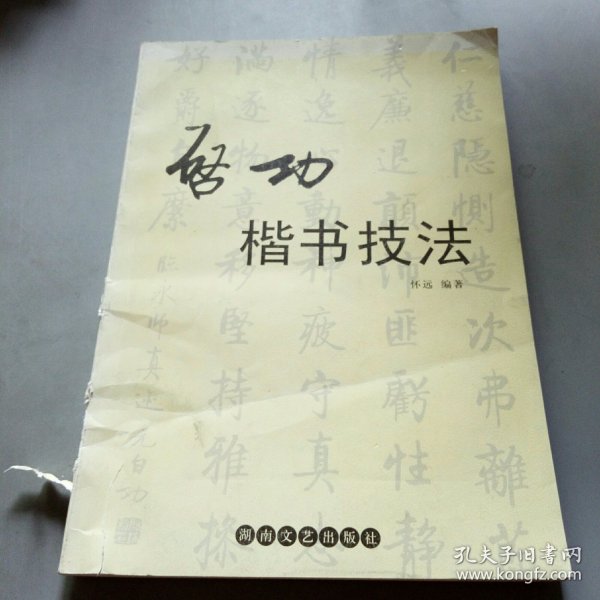 启功
楷书技法
怀远 编著
仁慈隐恻造次弗离
義廉退顛沛匪虧性静
情逸 動神疲守真志
满逐物意移堅持雅操
好爵 縻
臨永師真迹 元伯功
湖南文艺出版社
孔夫子旧书网
www.kongfz.com